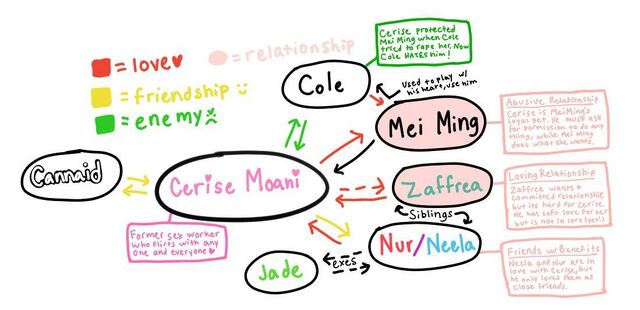 = love
= relationship
= friendship
= enemy
Cerise protected
Mei Ming when Cole
tried to rape her. Now
Cole HATES him!
Cole
Used to play w/
his heart, use him
Mei Ming
Abusive Relationship
Cerise is Mei Ming's
loyal pet. He must ask
for permission to do any
thing, while Mei Ming
does what she wants.
Cannaid
Cerise Moani
Zaffrea
Loving Relationship
Zaffrea wants a
committed relationship
but its hard for Cerise.
He has soft love for her
but is not in love (yet!)
Siblings
Former sex worker
who flirts with any
one and everyone
Nur/Neela
Jade
exes
Friends w/ Benefits
Neela and Nur are in
love with Cerise, but
he only loves them as
close friends.